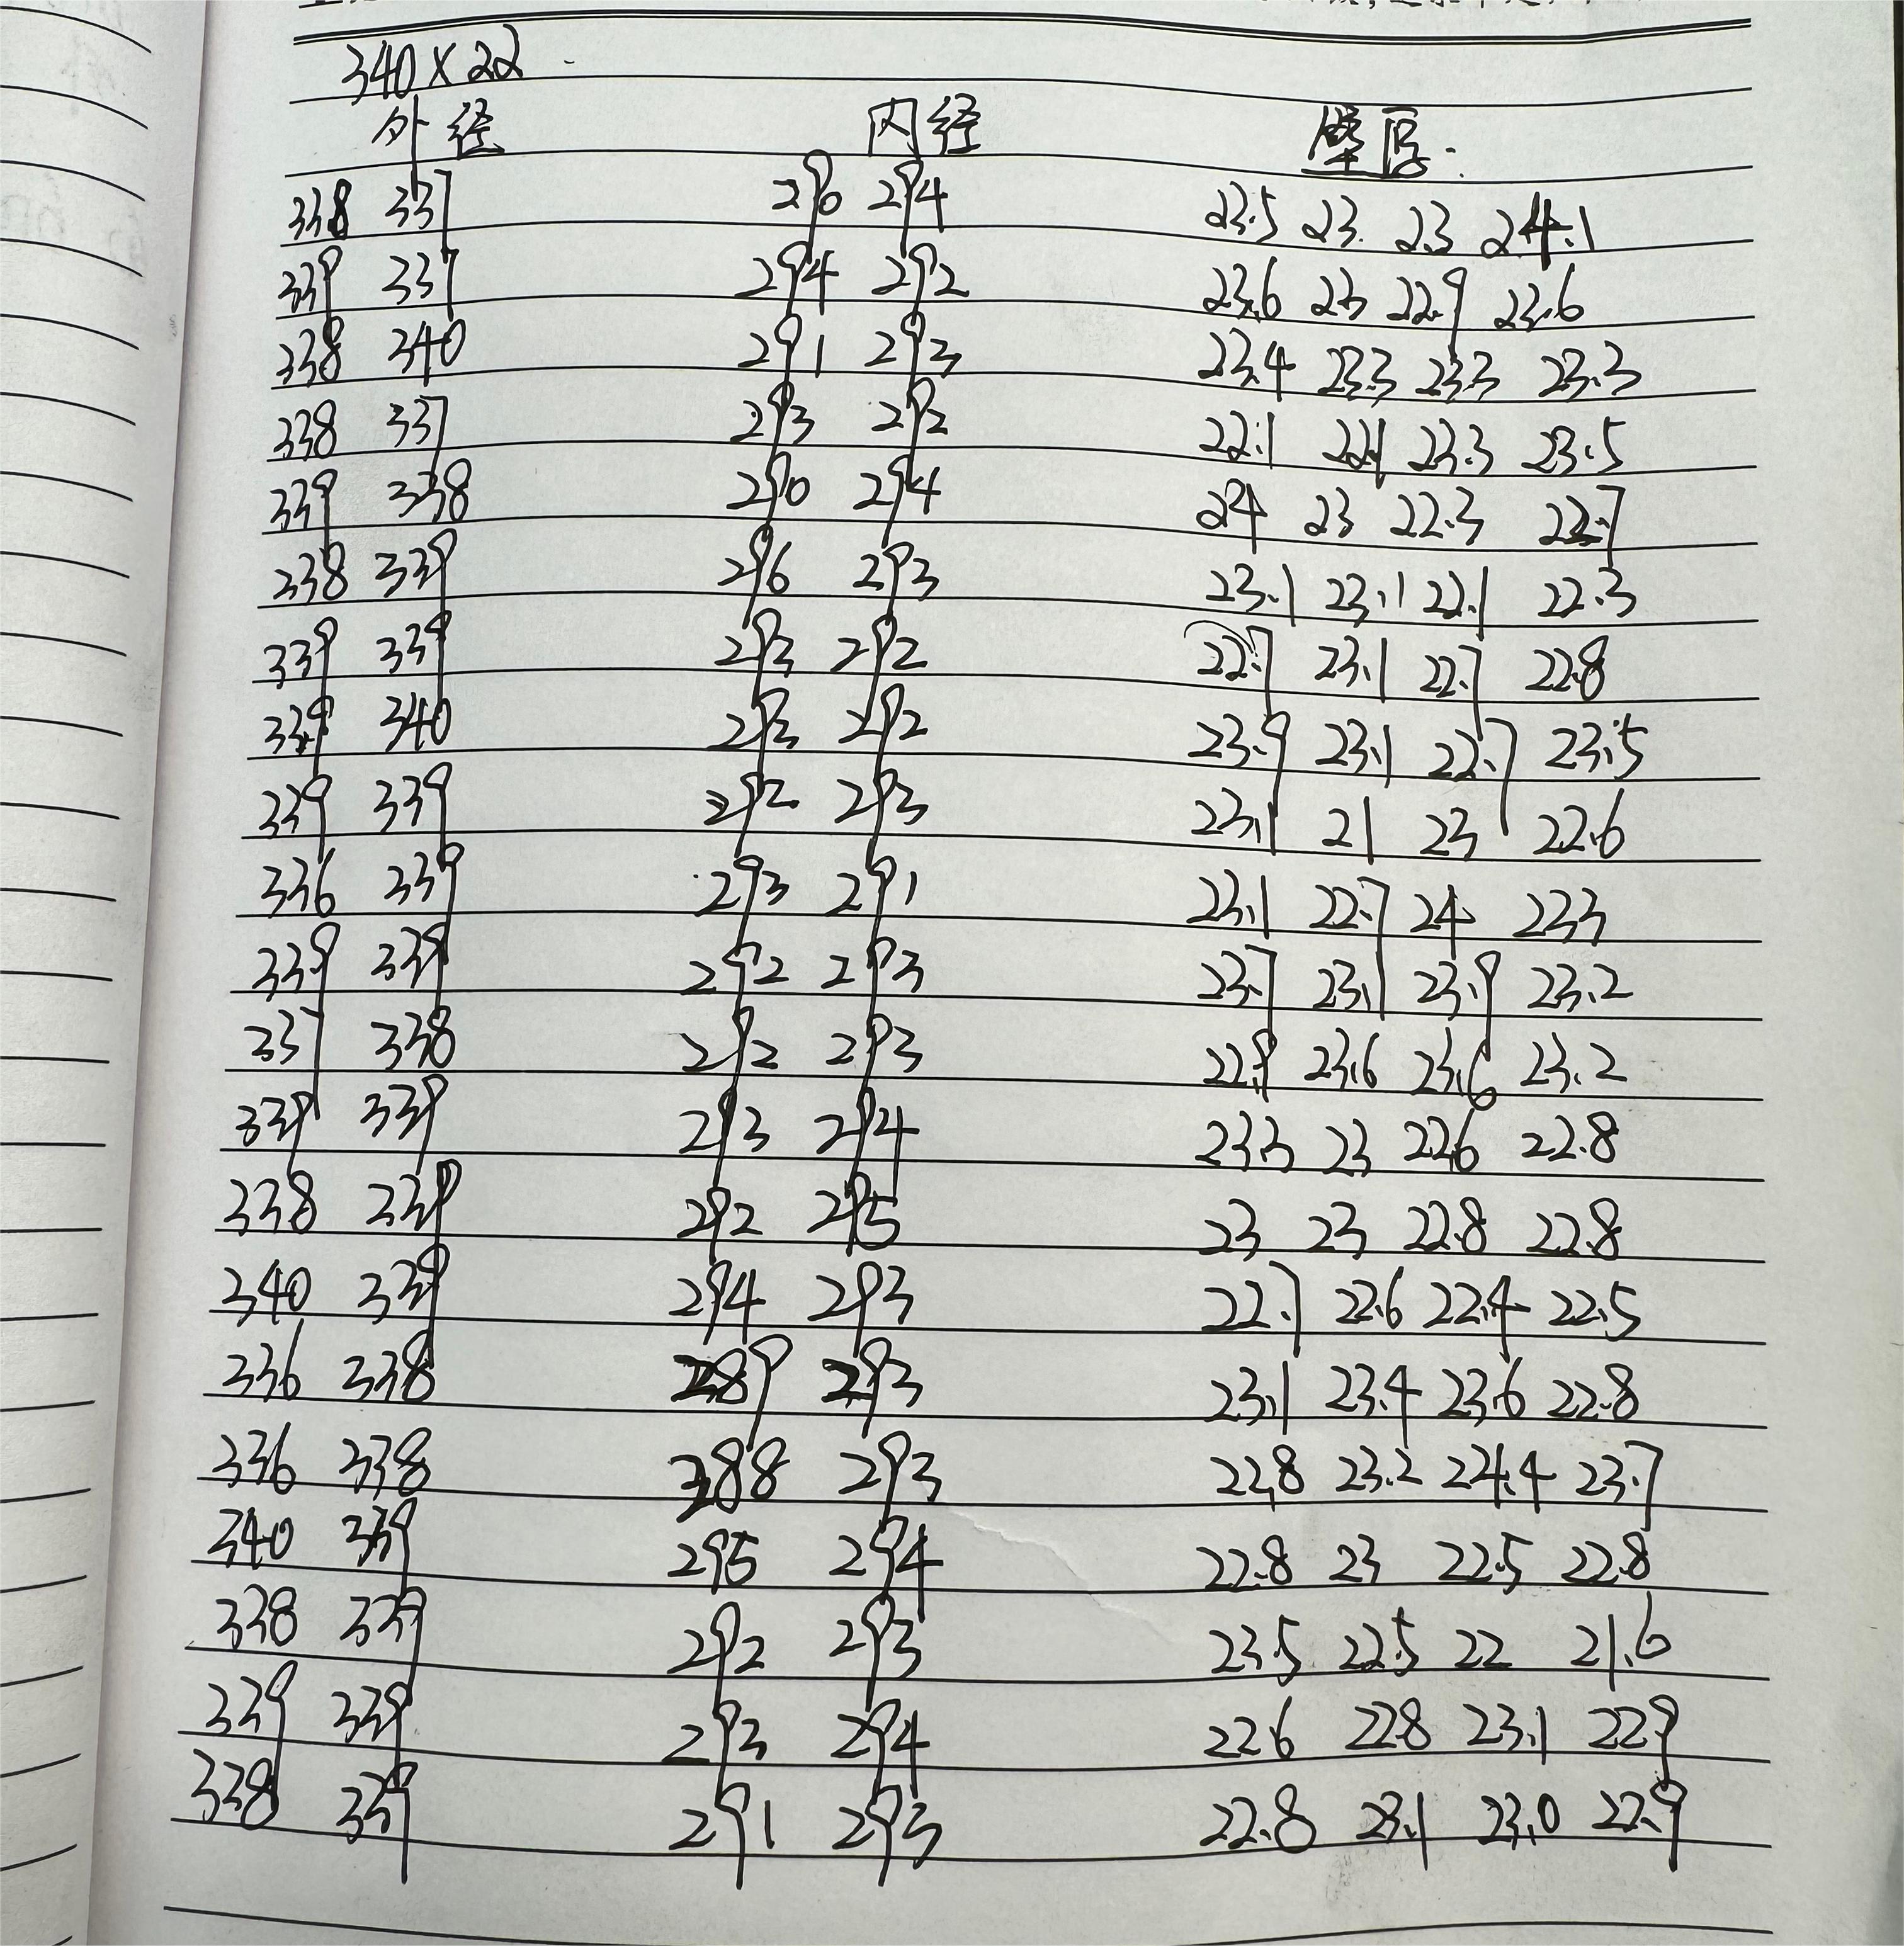 340×22
外径 内径 壁厚.
338 337 290 294 23.5 23. 23 24.1
339 337 294 292 23.6 23 22.9 23.6
338 340 291 293 23.4 23.3 23.3 23.3
338 337 293 292 22.1 22.1 23.3 23.5
339 338 290 294 24 23 22.3 22.7
338 339 296 293 23.1 23.1 22.1 22.3
339 339 293 292 22.7 23.1 22.7 22.8
339 340 293 292 23.9 23.1 22.7 23.5
339 339 292 293 23.1 21 23 22.6
336 339 293 291 23.1 22.7 24 23.3
339 339 292 293 23.7 23.1 23.9 23.2
337 338 292 293 22.9 23.6 23.6 23.2
339 339 293 294 23.3 23 22.6 22.8
338 339 292 295 23 23 22.8 22.8
340 339 294 293 22.7 22.6 22.4 22.5
336 338 289 293 23.1 23.4 23.6 22.8
336 338 288 293 22.8 23.2 24.4 23.7
340 339 295 294 22.8 23 22.5 22.8
338 339 292 293 23.5 22.5 22 21.6
339 339 293 294 22.6 22.8 23.1 22.9
338 339 291 293 22.8 23.1 23.0 22.9